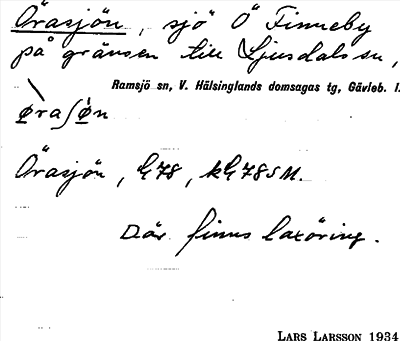 Örasjön, sjö Ö Finneby
på gränsen till Ljusdals sn,
Ramsjö sn, V. Hälsinglands domsagas tg, Gävleb. l.
ørasʃøn
Örasjön, G78, kG78SM.
Där finns laxöring.
LARS LARSSON 1934